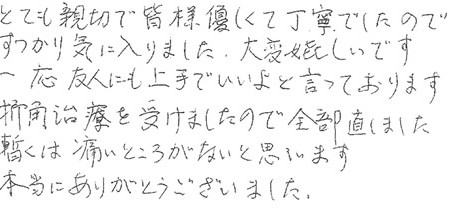 とても親切で皆様優しくて丁寧でしたので
すっかり気に入りました。大変嬉しいです
一応友人にも上手でいいよと言っております
折角治療を受けましたので全部直しました
暫くは痛いところがないと思います
本当にありがとうございました。